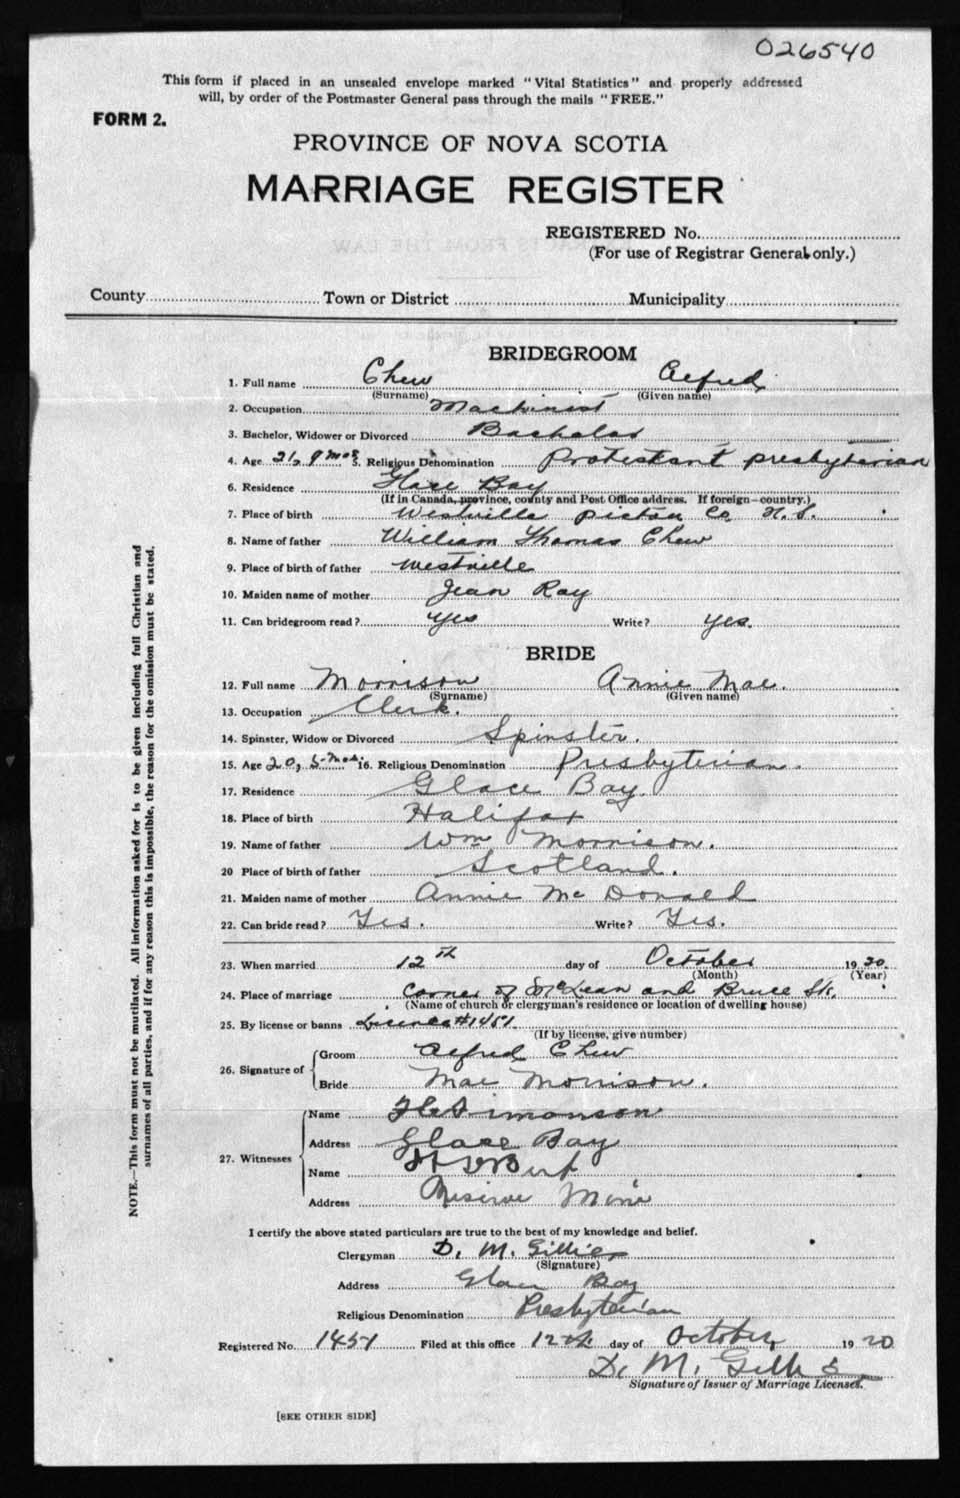 026540
This form if placed in an unsealed envelope marked "Vital Statistics" and properly addressed
will, by order of the Postmaster General pass through the mails "FREE."
FORM 2.
PROVINCE OF NOVA SCOTIA
MARRIAGE REGISTER
REGISTERED No.
(For use of Registrar General only.)
County Town or District Municipality
BRIDEGROOM
1. Full name Chew Alfred
(Surname) (Given name)
2. Occupation Machinist
3. Bachelor, Widower or Divorced Bachelor
4. Age 21, 9 mos 5. Religious Denomination Protestant presbyterian
6. Residence Glace Bay
(If in Canada, province, county and Post Office address. If foreign—country.)
7. Place of birth Westville Pictou Co. N.S.
8. Name of father William Thomas Chew
9. Place of birth of father Westville
10. Maiden name of mother Jean Ray
11. Can bridegroom read? Yes Write? Yes.
BRIDE
12. Full name Morrison Annie Mae.
(Surname) (Given name)
13. Occupation Clerk.
14. Spinster, Widow or Divorced Spinster.
15. Age 20, 5 mos. 16. Religious Denomination Presbyterian.
17. Residence Glace Bay.
18. Place of birth Halifax
19. Name of father Wm Morrison.
20 Place of birth of father Scotland.
21. Maiden name of mother Annie Mc Donald
22. Can bride read? Yes. Write? Yes.
23. When married 12th day of October 1920.
(Month) (Year)
24. Place of marriage Corner of McLean and Bruce St.
(Name of church or clergyman's residence or location of dwelling house)
25. By license or banns License #1451.
(If by license, give number)
26. Signature of Groom Alfred Chew
Bride Mae Morrison.
27. Witnesses
Name Simonson
Address Glace Bay
Name
Address Reserve Mine
I certify the above stated particulars are true to the best of my knowledge and belief.
Clergyman D. M. Gillies
(Signature)
Address Glace Bay
Religious Denomination Presbyterian
Registered No. 1451 Filed at this office 12th day of October 1920
D. M. Gillies
Signature of Issuer of Marriage Licenses.
[SEE OTHER SIDE]
NOTE.—This form must not be mutilated. All information asked for is to be given including full Christian and
surnames of all parties, and if for any reason this is impossible, the reason for the omission must be stated.